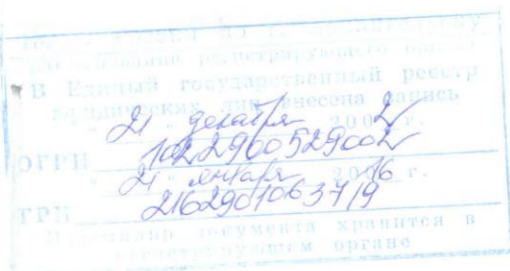 В Единый государственный реестр
юридических лиц внесена запись
21 декабря 2002 г.
ОГРН 1022900529002
21 января 2016 г.
ГРН 2162901063719
документа хранится в
регистрирующем органе